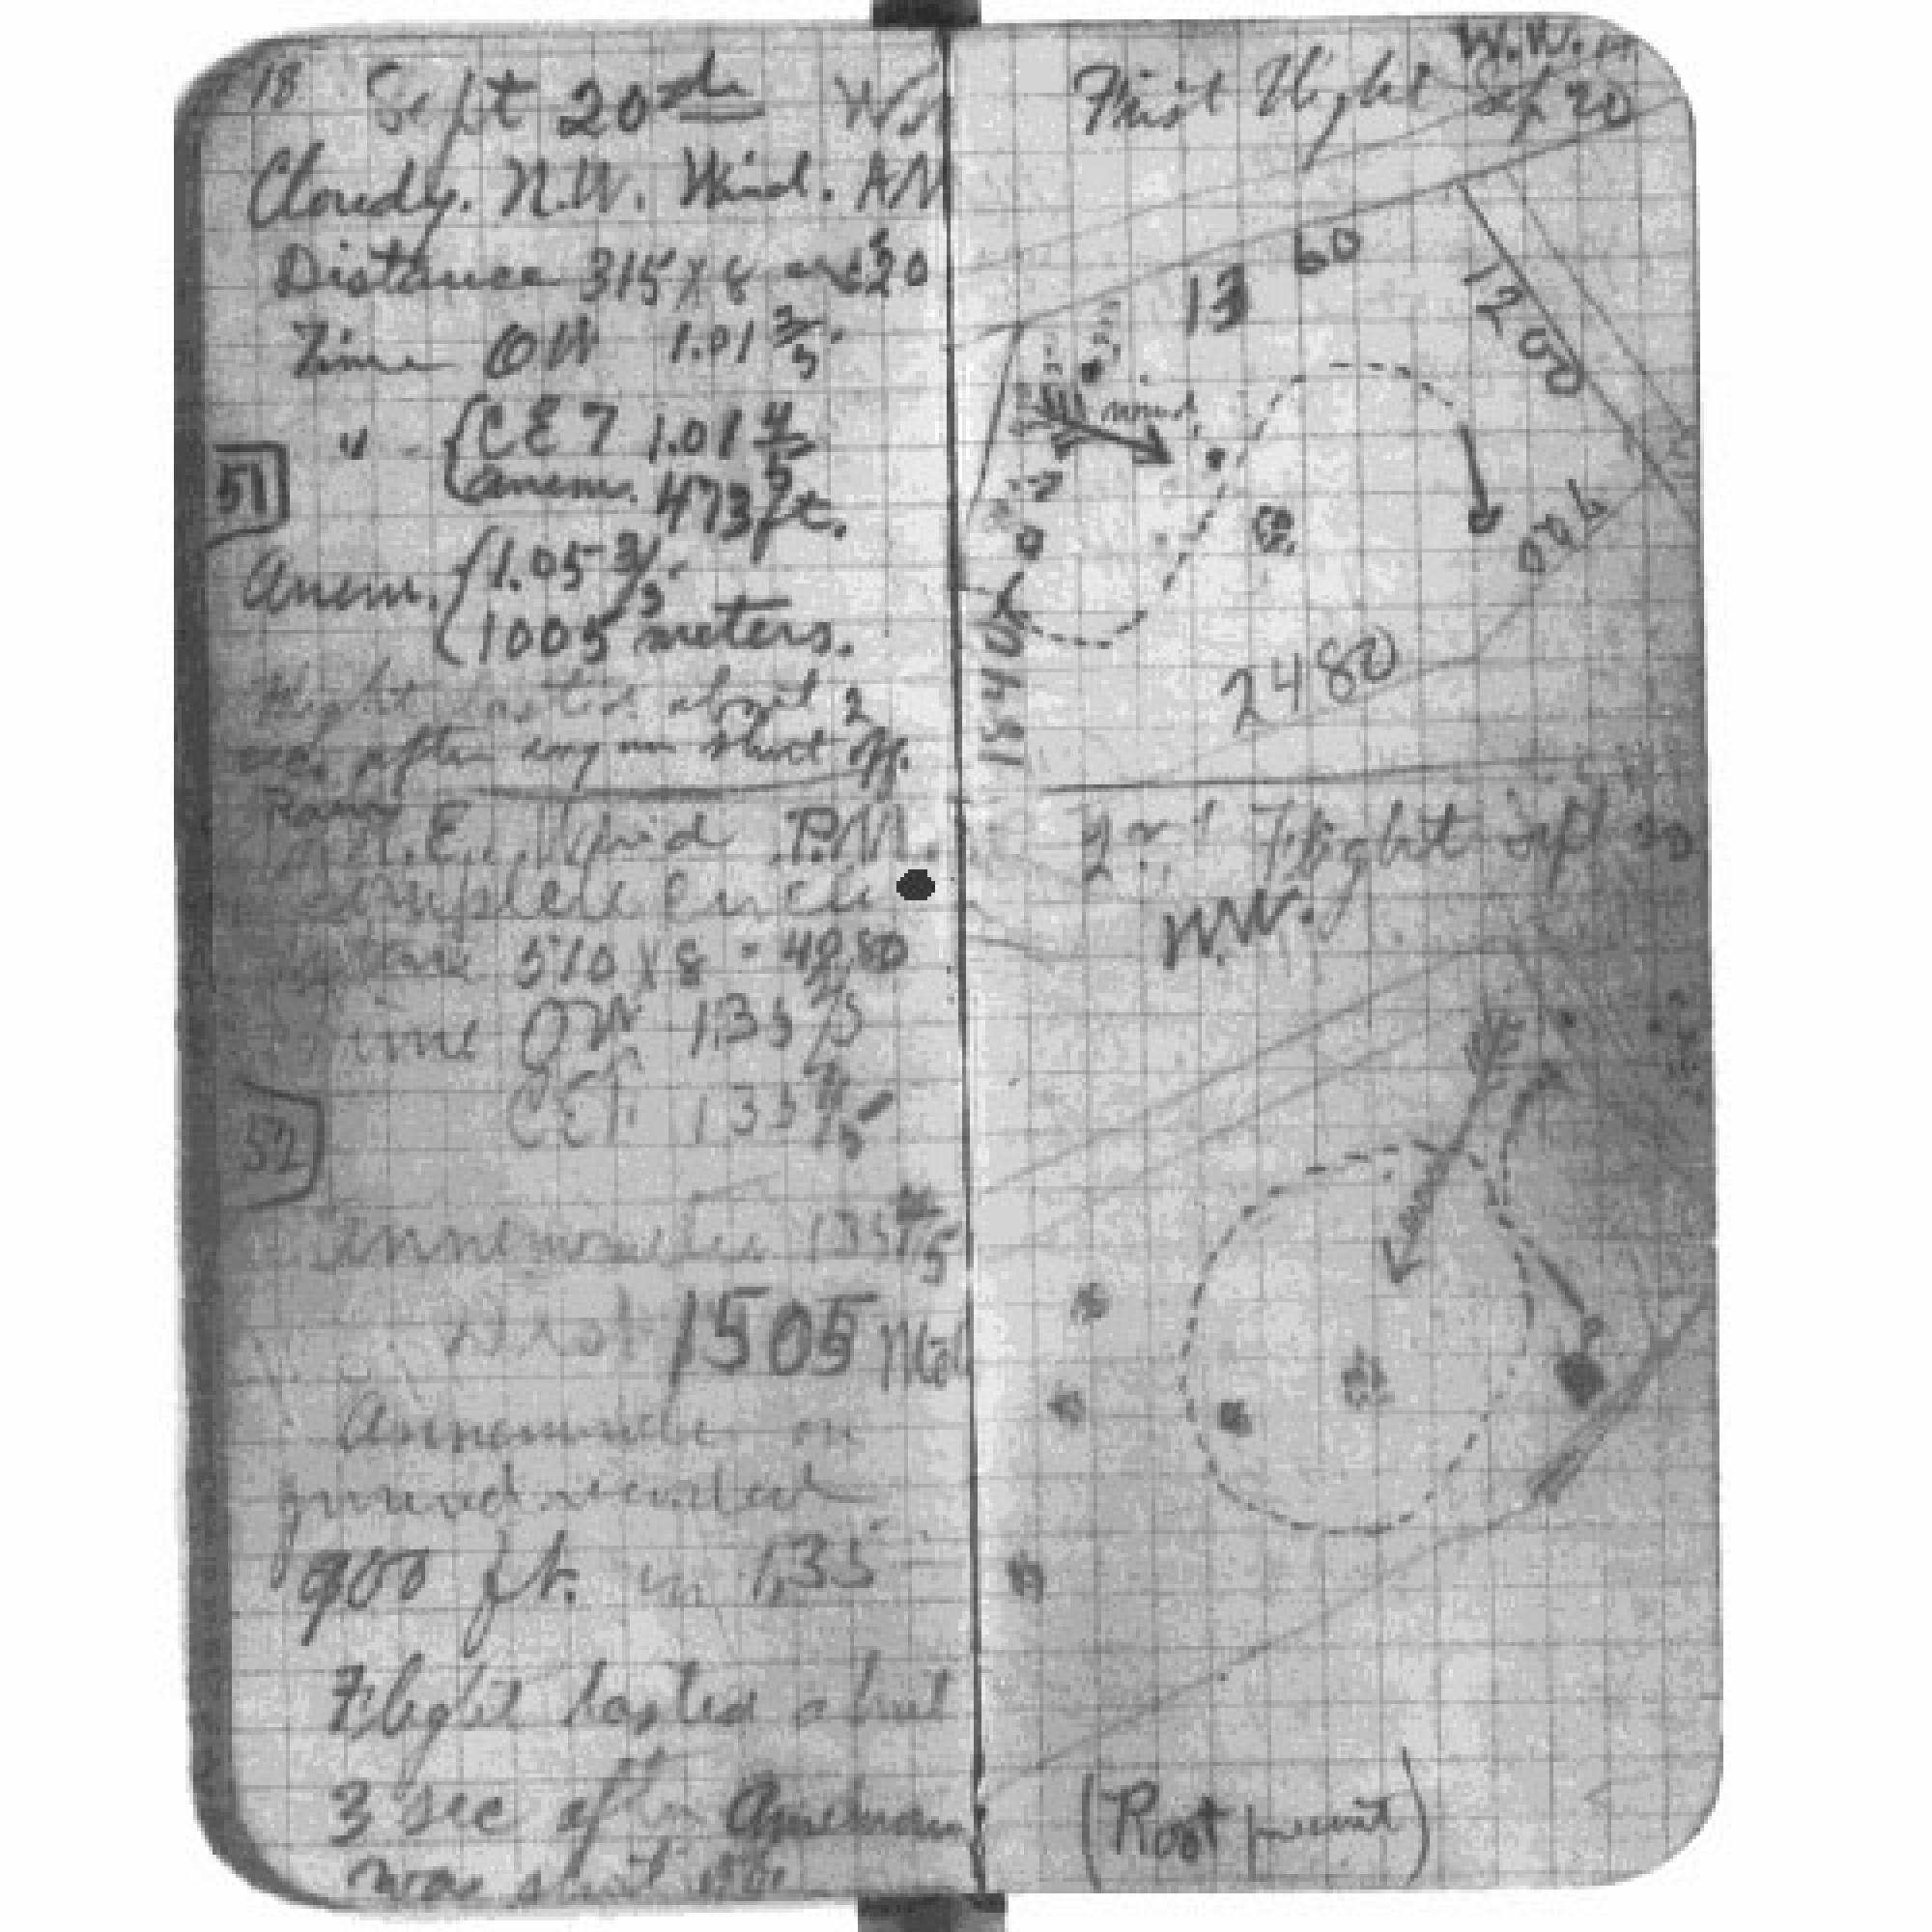 18 Sept 20th
Cloudy. N.W. Wind. AM
Distance 315 x 8 = 2520
Time OW 1.01 3/5
" CET 1.01 4/5
Anem. 473 ft.
51
Anem. 1.05 3/5
1005 meters.
Flight lasted about 2
sec. after engine shut off.
N.E. Wind P.M.
Complete Circle
Distance 510 x 8 = 4080
Time OW 1.35 4/5
CET 1.35 4/5
52
Annemometer 1.35 4/5
1505 Met
Annemometer on
ground recorded
900 ft. in 1.35
Flight lasted about
3 sec after
was shut off
W.W.
First Flight Sep 20
1360
1200
wind
740
1540
2480
2nd Flight Sept 20
W.W.
wind
(Root present)